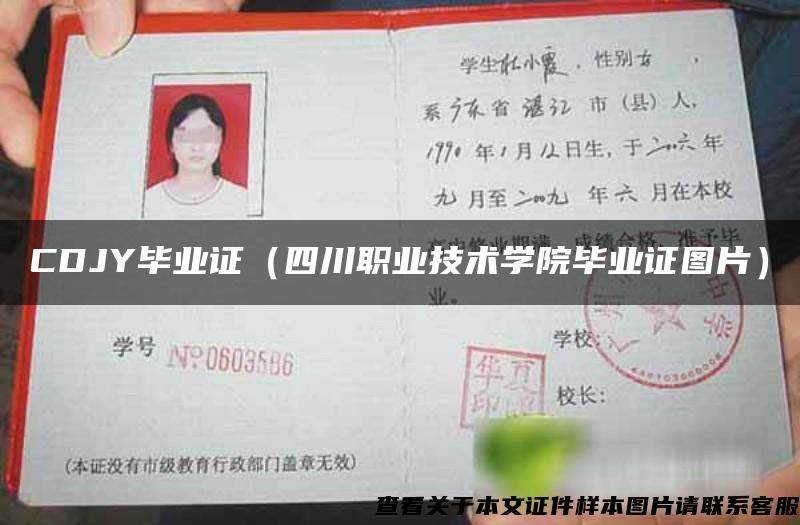 学生杜小霞，性别女，
系广东省湛江市（县）人，
1990年1月12日生，于二00六年
九月至二00九年六月在本校
CDJY毕业证（四川职业技术学院毕业证图片）
业。
学号 No 0603586
学校：
校长：
华夏
(本证没有市级教育行政部门盖章无效)
查看关于本文证件样本图片请联系客服